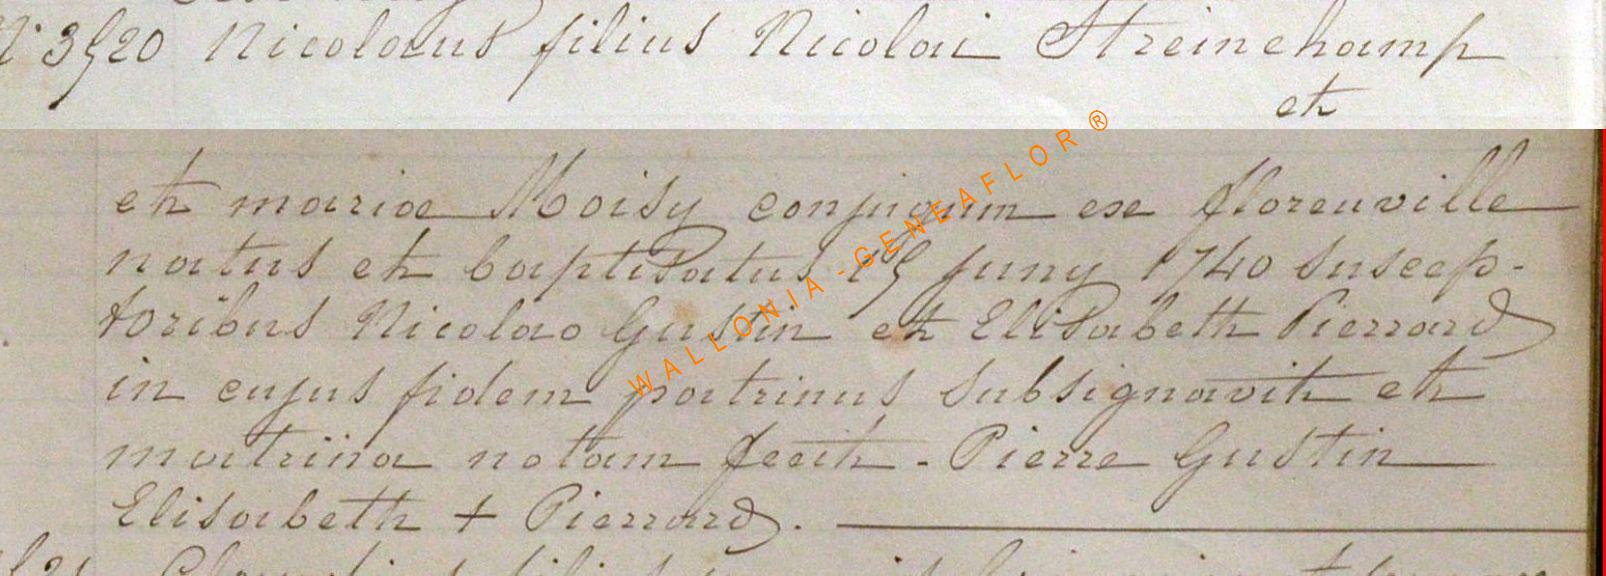 N° 3520 Nicolaus filius Nicolai Streinchamp
et
et mariæ Moisy conjugum ex florenville
natus et baptisatus 15 juny 1740 suscep-
toribus Nicolao Gustin et Elisabeth Pierrard
in cujus fidem patrinus subsignavit et
matrina notam fecit - Pierre Gustin
Elisabeth + Pierrard.
WALLONIA-GENEAFLOR ®